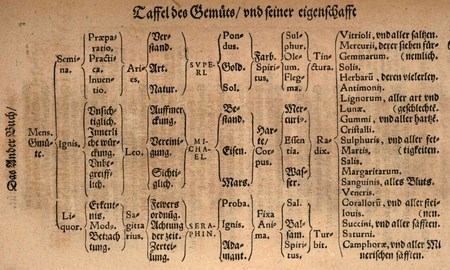 Taffel des Gemütes/ vnd seiner eigenschafft
Das Ander Buch/
Mens.
Gmüte.
Semina.
Ignis.
Liquor.
Præparatio.
Practica
Inuentio.
Vnsichtiglich.
Innerliche würckung.
Vnbegreifflich.
Erkentnis.
Mods.
Betrachtung.
Aries.
Leo.
Sagittarius.
Verstand.
Art.
Natur.
Auffmerckung.
Vereinigung.
Sichtiglich.
Fewers ordnüg.
Achtung der zeit.
Zerteilung.
SVPERI.
MICHAEL.
SERAPHIN.
Pondus.
Gold.
Sol.
Bestand.
Eisen.
Mars.
Proba.
Ignis.
Adamant.
Farb.
Spiritus.
Harte
Corpus.
Fixa
Anima.
Sulphur.
Oleum
Flegma.
Mercurius.
Essentia.
Wasser.
Sal.
Balsam.
Spiritus.
Tinctura.
Radix.
Turbit.
Vitrioli, vnd aller saltzen.
Mercurii, derer sieben für-
Gemmarum. (nemlich.
Solis.
Herbarũ, deren vielerley.
Antimonij.
Lignorum, aller art vnd
Lunæ, (geschlecht.
Gummi, vnd aller hartz.
Cristalli.
Sulphuris, vnd aller fet-
Martis, (tigkeiten.
Salis.
Margaritarum.
Sanguinis, alles Bluts.
Veneris.
Corallorũ, vnd aller stei-
Iouis, (nen.
Succini, vnd aller säfften.
Saturni.
Camphoræ, vnd aller Mi
nerischen säfften.